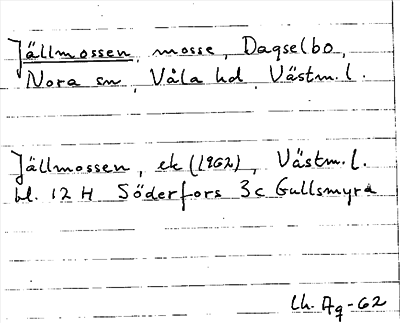 Jällmossen, mosse, Daqselbo,
Nora sn, Våla hd, Västm.l.
Jällmossen, ek (1962), Västm.l.
bl. 12 H Söderfors 3c Gullsmyra
Lh. Ag-62